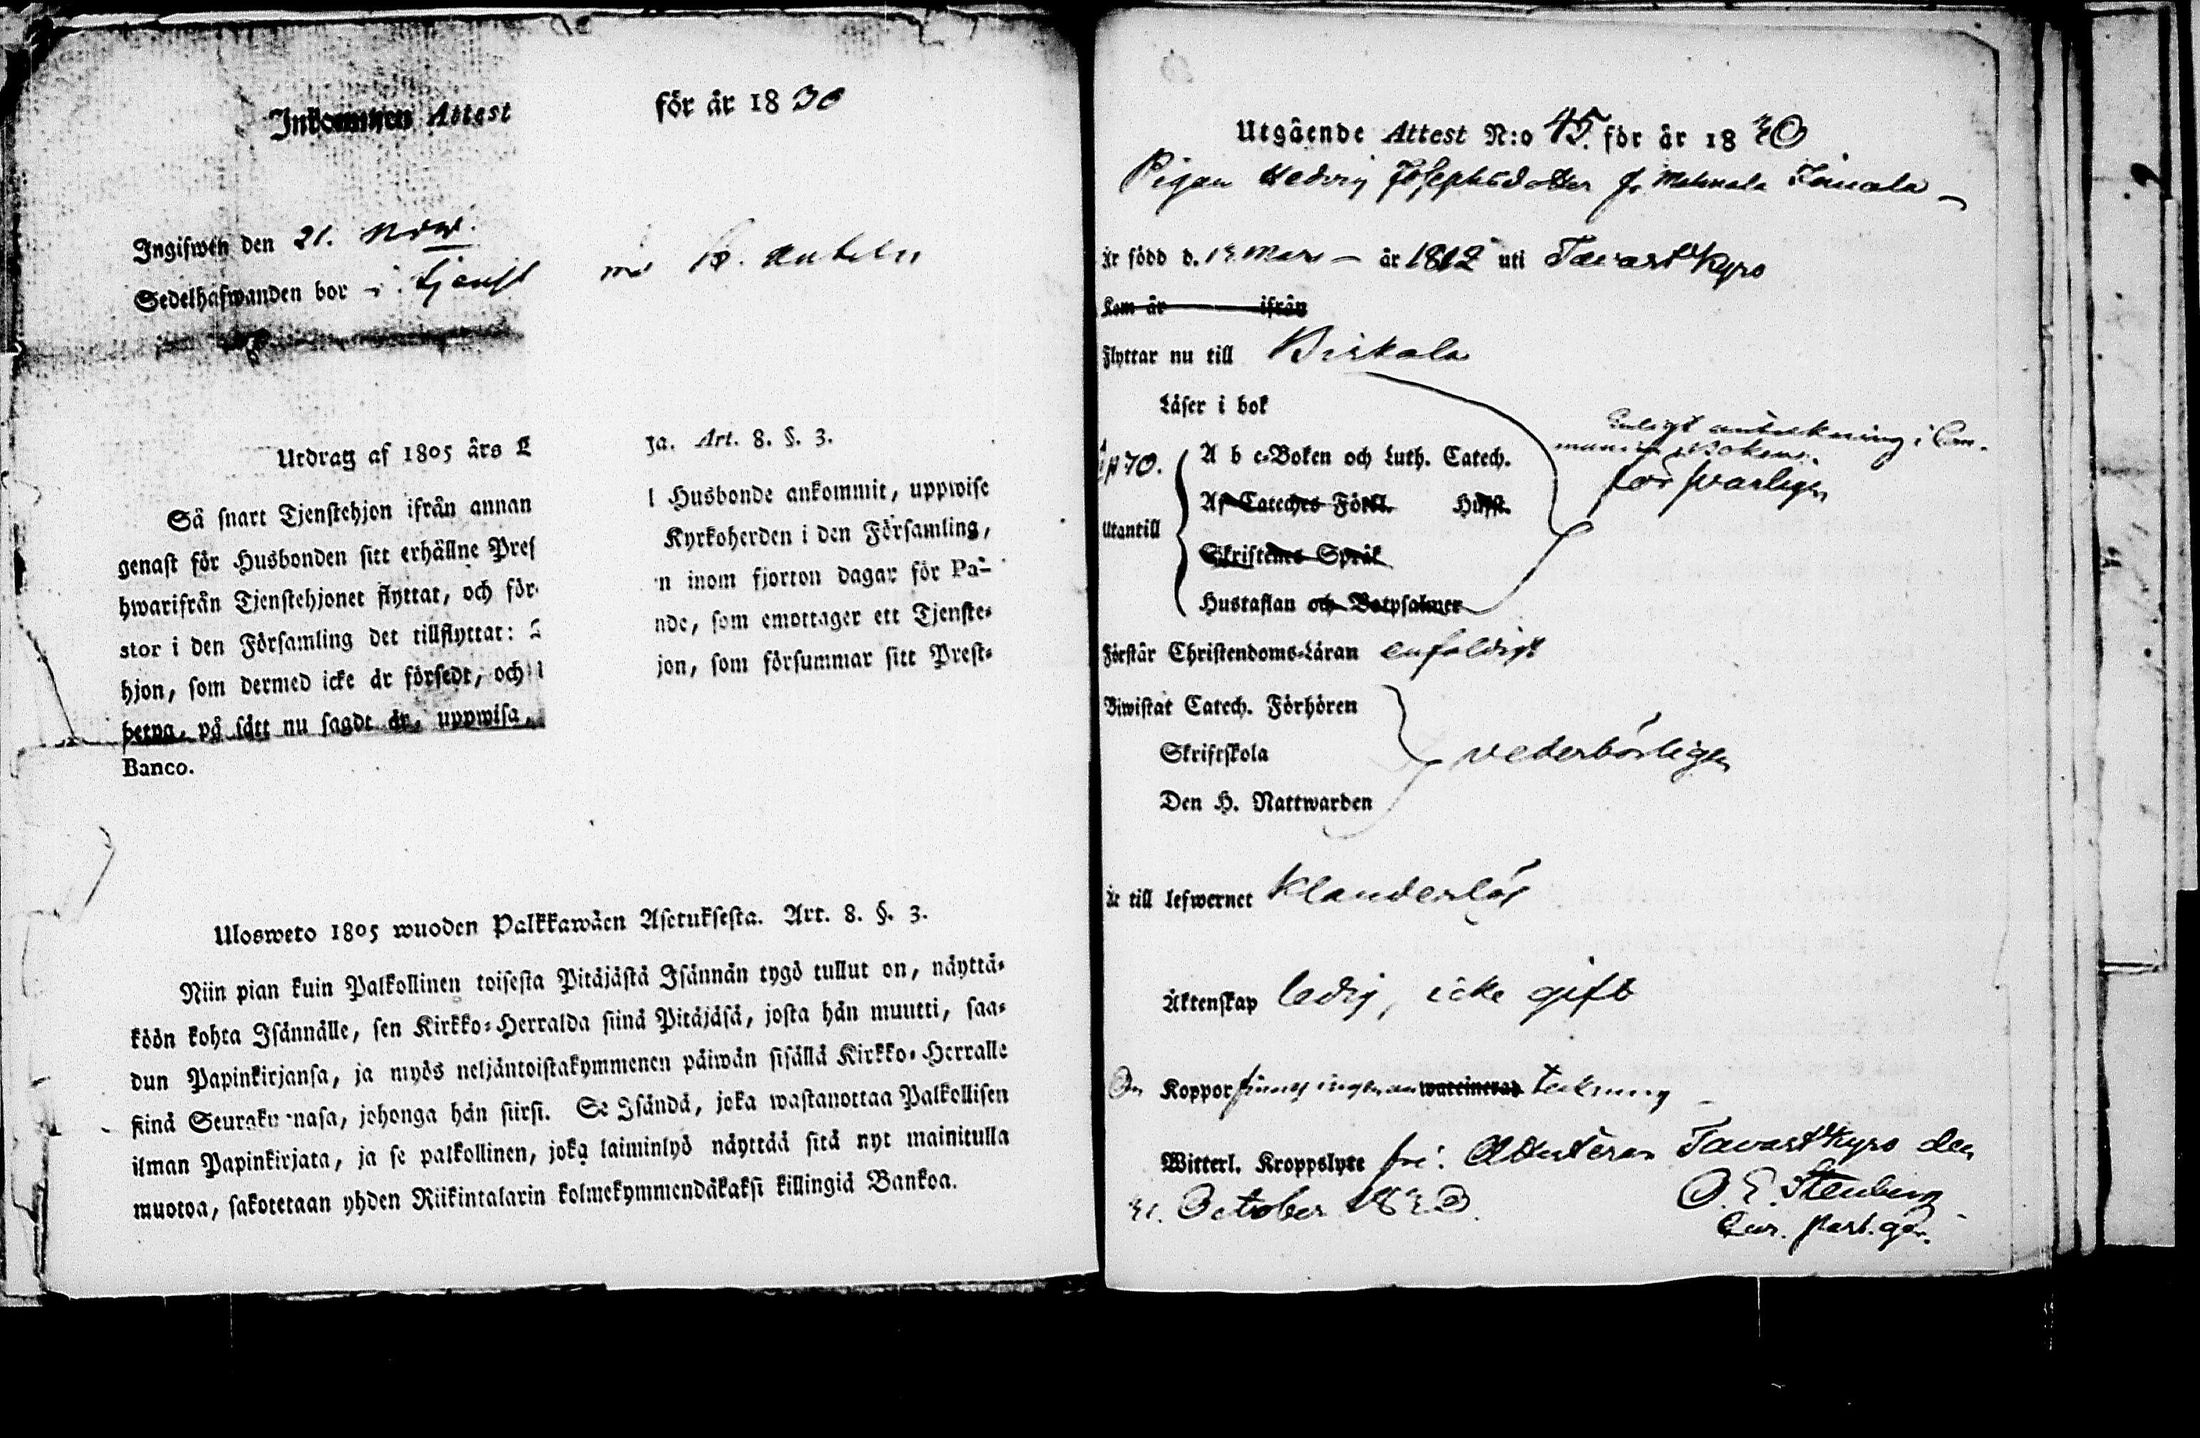 Inkommen Attest för år 1830
Ingifwen den 21. Nov.
Sedelhafwanden bor i tjenst
Utdrag af 1805 års L ja. Art. 8. §. 3.
Så snart Tjenstehjon ifrån annan l Husbonde ankommit, uppwise
genast för Husbonden sitt erhållne Pres Kyrkoherden i den Församling,
hwarifrån Tjenstehjonet flyttat, och för n inom fjorton dagar för Pa-
stor i den Församling det tillflyttat: nde, som emottager ett Tjenste-
hjon, som dermed icke är försedt, och jon, som försummar sitt Prest-
betyg, på sätt nu sagdt är, uppwisa,
Banco.
Ulosweto 1805 wuoden Palkkawäen Asetuksesta. Art. 8. §. 3.
Niin pian kuin Palkollinen toisesta Pitäjästä Isännän tygö tullut on, näyttä-
köön kohta Isännälle, sen Kirkko-Herralda siinä Pitäjäsä, josta hän muutti, saa-
dun Papinkirjansa, ja myös neljäntoistakymmenen päiwän sisällä Kirkko-Herralle
siinä Seurakunnasa, johonga hän siirsi. Se Isändä, joka wastanottaa Palkollisen
ilman Papinkirjata, ja se palkollinen, joka laiminlyö näyttää sitä nyt mainitulla
muotoa, sakotetaan yhden Riikintalarin kolmekymmendäkaksi killingiä Bankoa.
Utgående Attest N:o 45. för år 1830
Pigan Hedvig Josephsdotter fr. Mahnala
Är född d. Mars år 1812 uti Tavastkyro
Kom år ifrån
Flyttar nu till Birkala
Läser i bok
Enligt anteckning i Com-
munion Boken
försvarligen
p 70.
A b c-Boken och Luth. Catech.
Af Cateches Förkl. Hufst.
Utantill
Skriftenes Språk
Hustaflan och Botpsalmer
Förstår Christendoms-Läran enfaldigt
Biwistat Catech. Förhören
Skriftskola vederbörligen
Den H. Nattwarden
Är till lefwernet klanderlös
Äktenskap ledig, icke gift
Om Koppor finnes ingen an waccinerad teckning
Witterl. Kroppslyte fri. Attesteras Tavastkyro den
31. October 1830. Stenberg
Cur. past. ger.